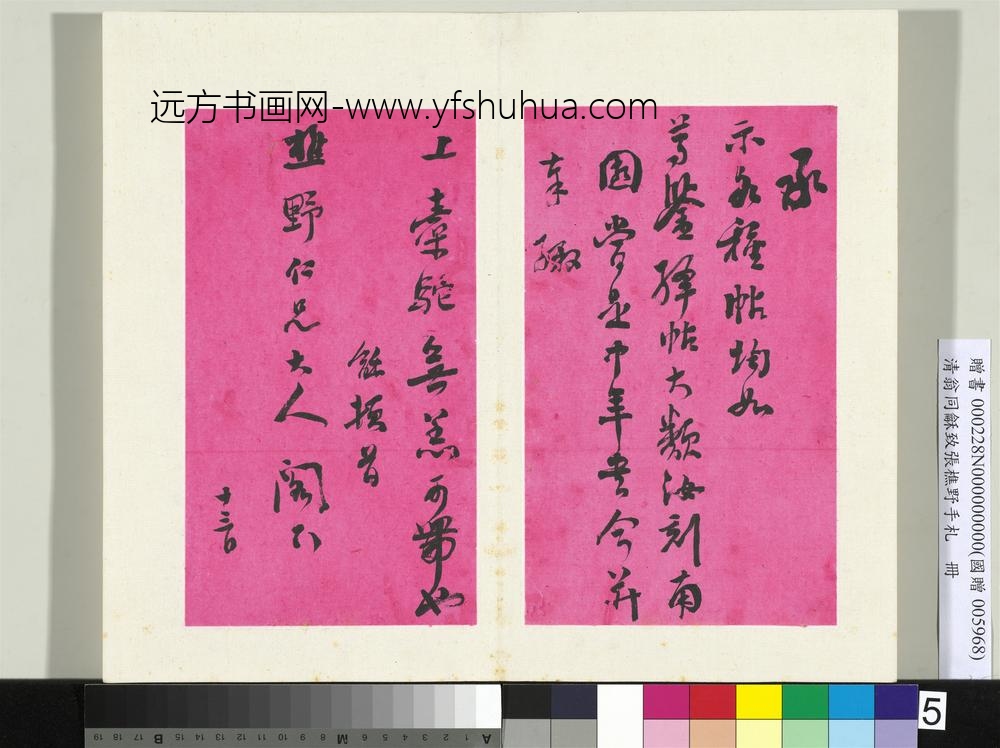 远方书画网-www.yfshuhua.com
承
示各種帖均如
尊鑒絳帖大類汝刻南
園嘗是中年書今并
奉繳
上橐駝無恙可帶也
龢頓首
樵野仁兄大人 閣下
十三日
贈書 000228N000000000(國贈 005968)
清翁同龢致張樵野手札 冊
19 18 17 16 15 14 13 12 11 10 9 8 7 6 5 4 3 2 1
B M A
5